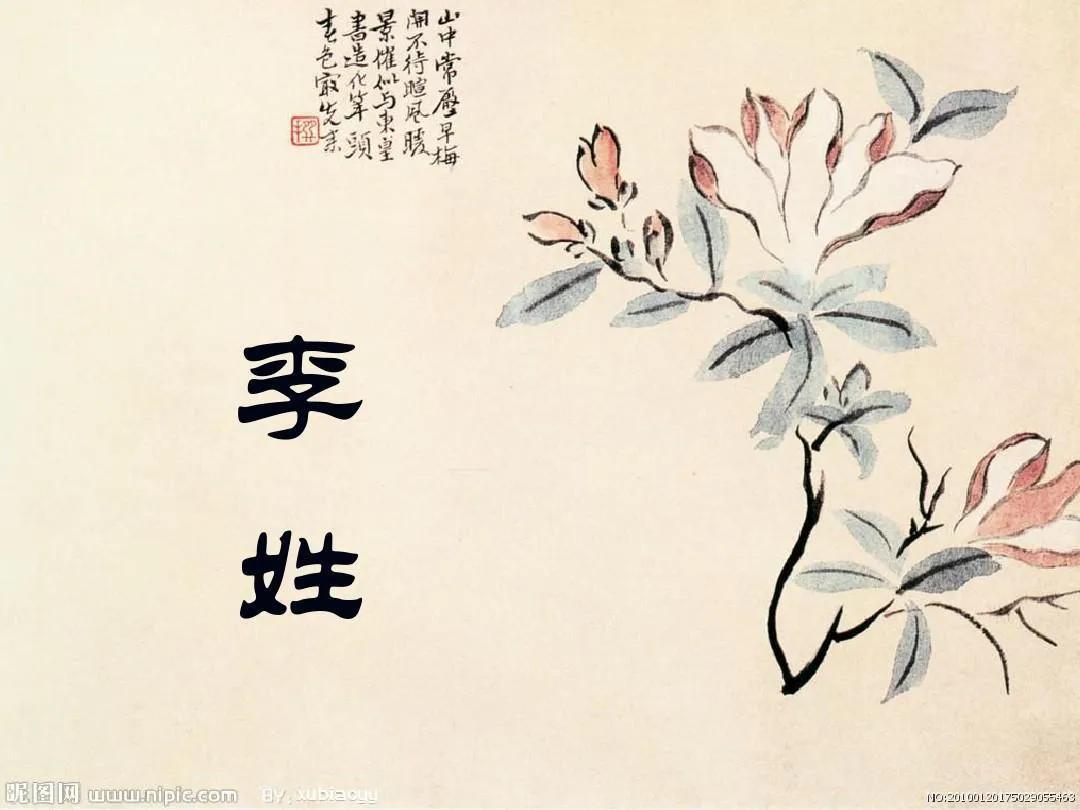 山中常壓早梅
開不待暄風暖
景催似与東皇
書造化筆頭
春色最先来
李
姓
昵图网 www.nipic.com
BY: xubiaoyy
NO:20100120175029055463